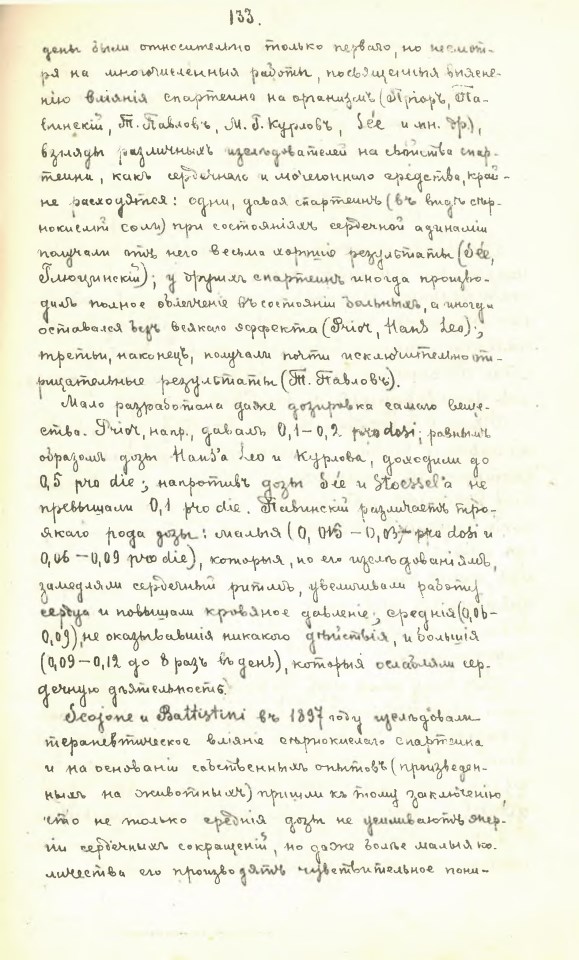 133.
дены были относительно только перваго, но несмот-
ря на многочисленныя работы, посвященныя выясне-
нію вліянія спартеина на организмъ (Пріоръ, Па-
винскій, Т. Павловъ, М. Г. Курловъ, Sée и мн. др.),
взгляды различныхъ изслѣдователей на свойства спар-
теина, какъ сердечнаго и мочегоннаго средства, край-
не расходятся: одни, давая спартеинъ (въ видѣ сѣр-
нокислой соли) при состояніяхъ сердечной адинаміи
получали отъ него весьма хорошіе результаты (Sée,
Глюзинскій); у другихъ спартеинъ иногда произво-
дилъ полное облегченіе въ состояніи больныхъ, а иногда
оставался безъ всякаго эффекта (Prior, Hans Leo);
третьи, наконецъ, получали почти исключительно от-
рицательные результаты (Т. Павловъ).
Мало разработана даже дозировка самаго веще-
ства. Prior, напр., давалъ 0,1-0,2 pro dosi; равнымъ
образомъ дозы Hans'a Leo и Курлова, доходили до
0,5 pro die; напротивъ дозы Sée и Stoessel'a не
превышали 0,1 pro die. Павинскій различаетъ тро-
якаго рода дозы: малыя (0,015-0,03 pro dosi и
0,06-0,09 pro die), которыя, по его изслѣдованіямъ,
замедляли сердечный ритмъ, увеличивали работу
сердца и повышали кровяное давленіе; среднія (0,06-
0,09), не оказывавшія никакого дѣйствія, и большія
(0,09-0,12 до 8 разъ въ день), которыя ослабляли сер-
дечную дѣятельность.
Scojone и Battistini въ 1897 году изслѣдовали
терапевтическое вліяніе сѣрнокислаго спартеина
и на основаніи собственныхъ опытовъ (произведен-
ныхъ на животныхъ) пришли къ тому заключенію,
что не только среднія дозы не усиливаютъ энер-
гіи сердечныхъ сокращеній, но даже болѣе малыя ко-
личества его производятъ чувствительное пони-